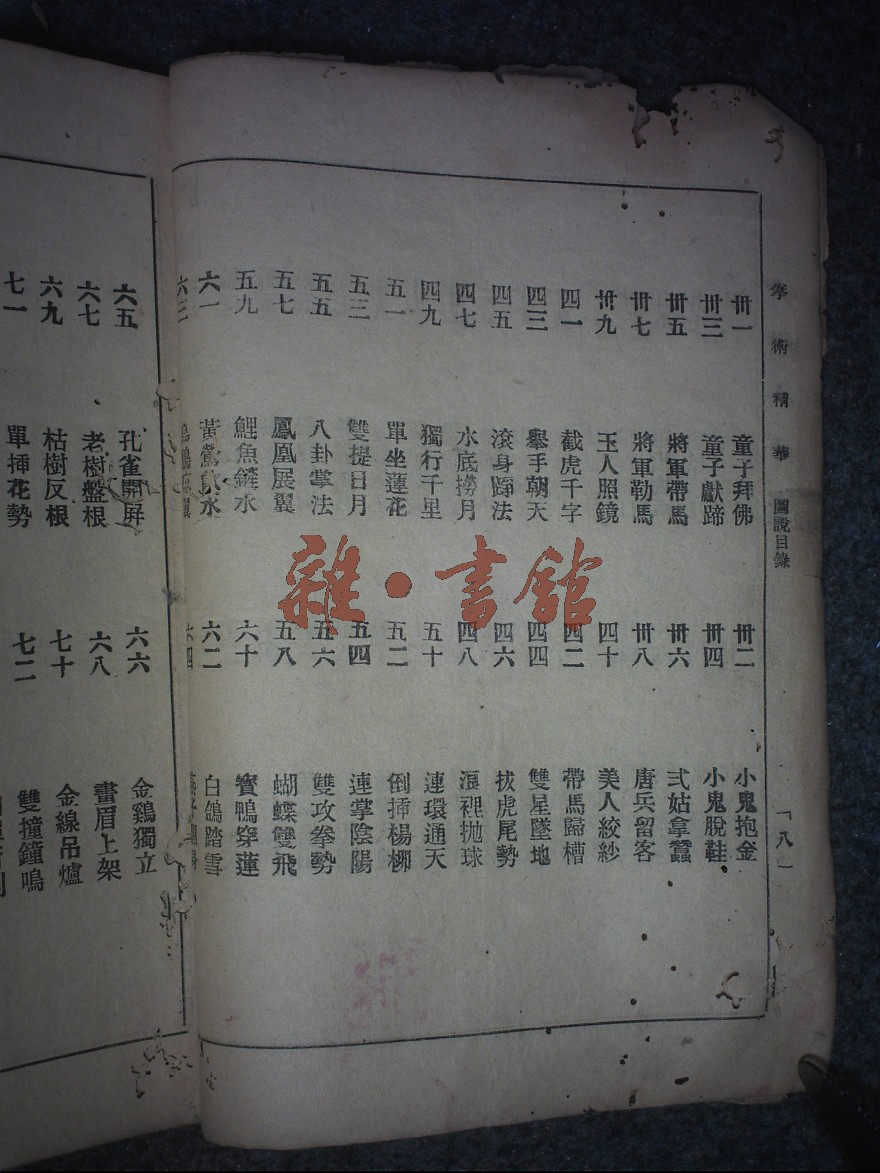 拳術精華 圖說目錄 八
卅一 童子拜佛 卅二 小鬼抱金
卅三 童子獻蹄 卅四 小鬼脫鞋
卅五 將軍帶馬 卅六 弍姑拿蠶
卅七 將軍勒馬 卅八 唐兵留客
卅九 玉人照鏡 四十 美人絞紗
四一 截虎千字 四二 帶馬歸槽
四三 舉手朝天 四四 雙星墜地
四五 滾身蹄法 四六 拔虎尾勢
四七 水底撈月 四八 浪裡拋球
四九 獨行千里 五十 連環通天
五一 單坐蓮花 五二 倒揷楊柳
五三 雙提日月 五四 連掌陰陽
五五 八卦掌法 五六 雙攻拳勢
五七 鳳凰展翼 五八 蝴蝶雙飛
五九 鯉魚鏟水 六十 寳鴨穿蓮
六一 黃鶯 水 六二 白鴿踏雪
六三 六四
六五 孔雀開屏 六六 金鷄獨立
六七 老樹盤根 六八 畫眉上架
六九 枯樹反根 七十 金線吊爐
七一 單揷花勢 七二 雙撞鐘鳴
雜·書館